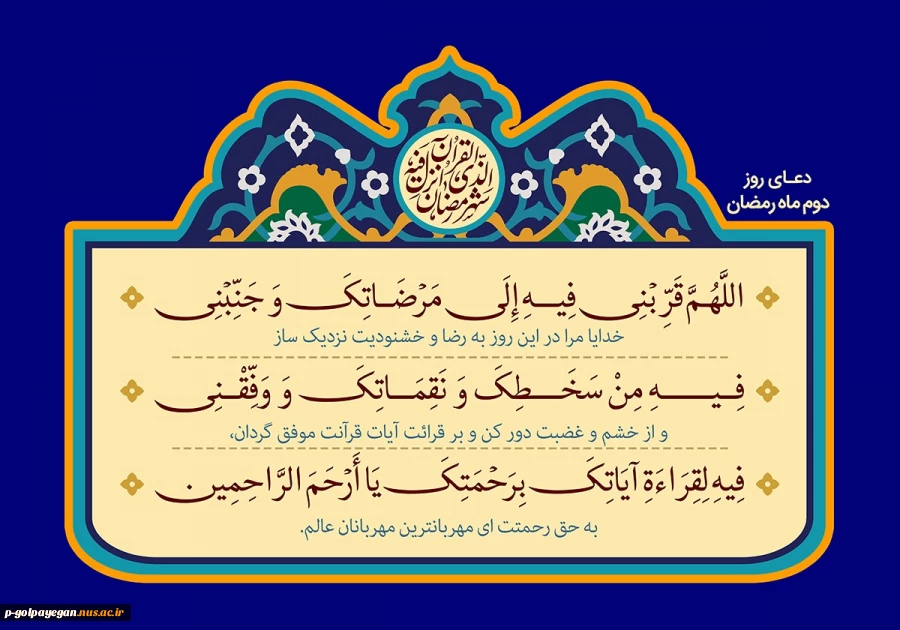 شهر رمضان الذی انزل فیه القرآن
دعـای روز
دوم ماه رمضان
اللَّهُمَّ قَرِّبْنِي فِيهِ إِلَى مَرْضَاتِكَ وَ جَنِّبْنِي
خدایا مرا در این روز به رضا و خشنودیت نزدیک ساز
فِيهِ مِنْ سَخَطِكَ وَ نَقِمَاتِكَ وَ وَفِّقْنِي
و از خشم و غضبت دور کن و بر قرائت آیات قرآنت موفق گردان،
فِيهِ لِقِرَاءَةِ آيَاتِكَ بِرَحْمَتِكَ يَا أَرْحَمَ الرَّاحِمِينَ.
به حق رحمتت ای مهربانترین مهربانان عالم.
p-golpayegan.nus.ac.ir